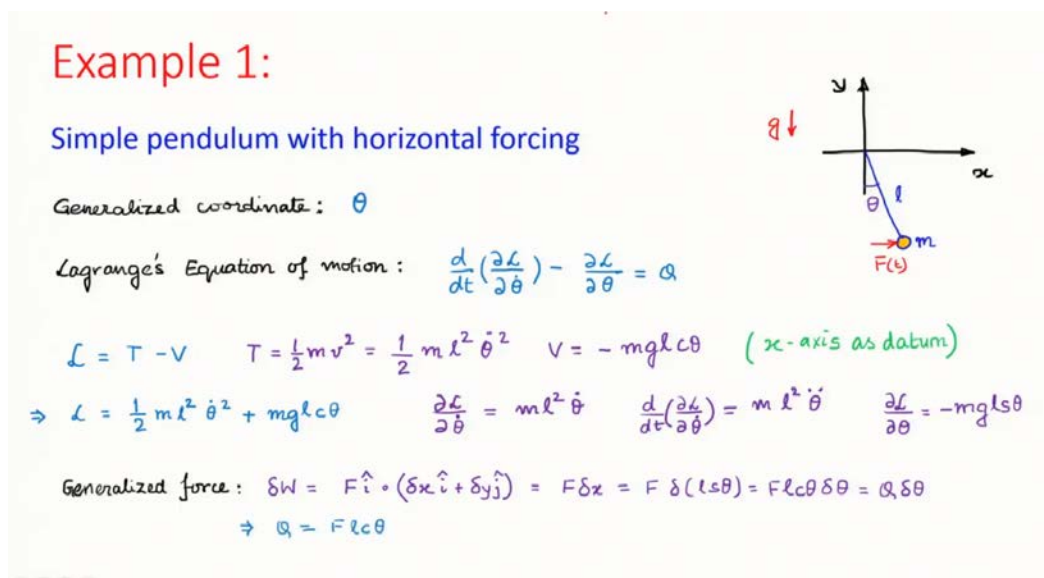 Example 1:
Simple pendulum with horizontal forcing
y
g↓
x
θ
l
m
F(t)
Generalized coordinate: θ
Lagrange's Equation of motion: d/dt(∂ℒ/∂θ̇) − ∂ℒ/∂θ = Q
ℒ = T − V T = ½ m v² = ½ m l² θ̇² V = − mglcθ (x-axis as datum)
⇒ ℒ = ½ m l² θ̇² + mglcθ ∂ℒ/∂θ̇ = ml² θ̇ d/dt(∂ℒ/∂θ̇) = m l² θ̈ ∂ℒ/∂θ = −mglsθ
Generalized force: δW = Fî • (δxî + δyĵ) = Fδx = F δ(lsθ) = Flcθ δθ = Qδθ
⇒ Q = Flcθ